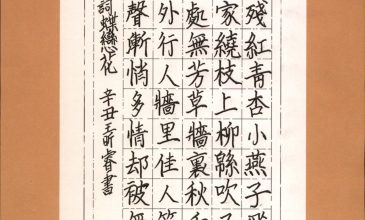 殘紅青杏小燕子
家繞枝上柳緜吹
處無芳草牆裏秋
外行人牆里佳人笑
聲漸悄多情却被
詞蝶戀花 辛丑 睿書